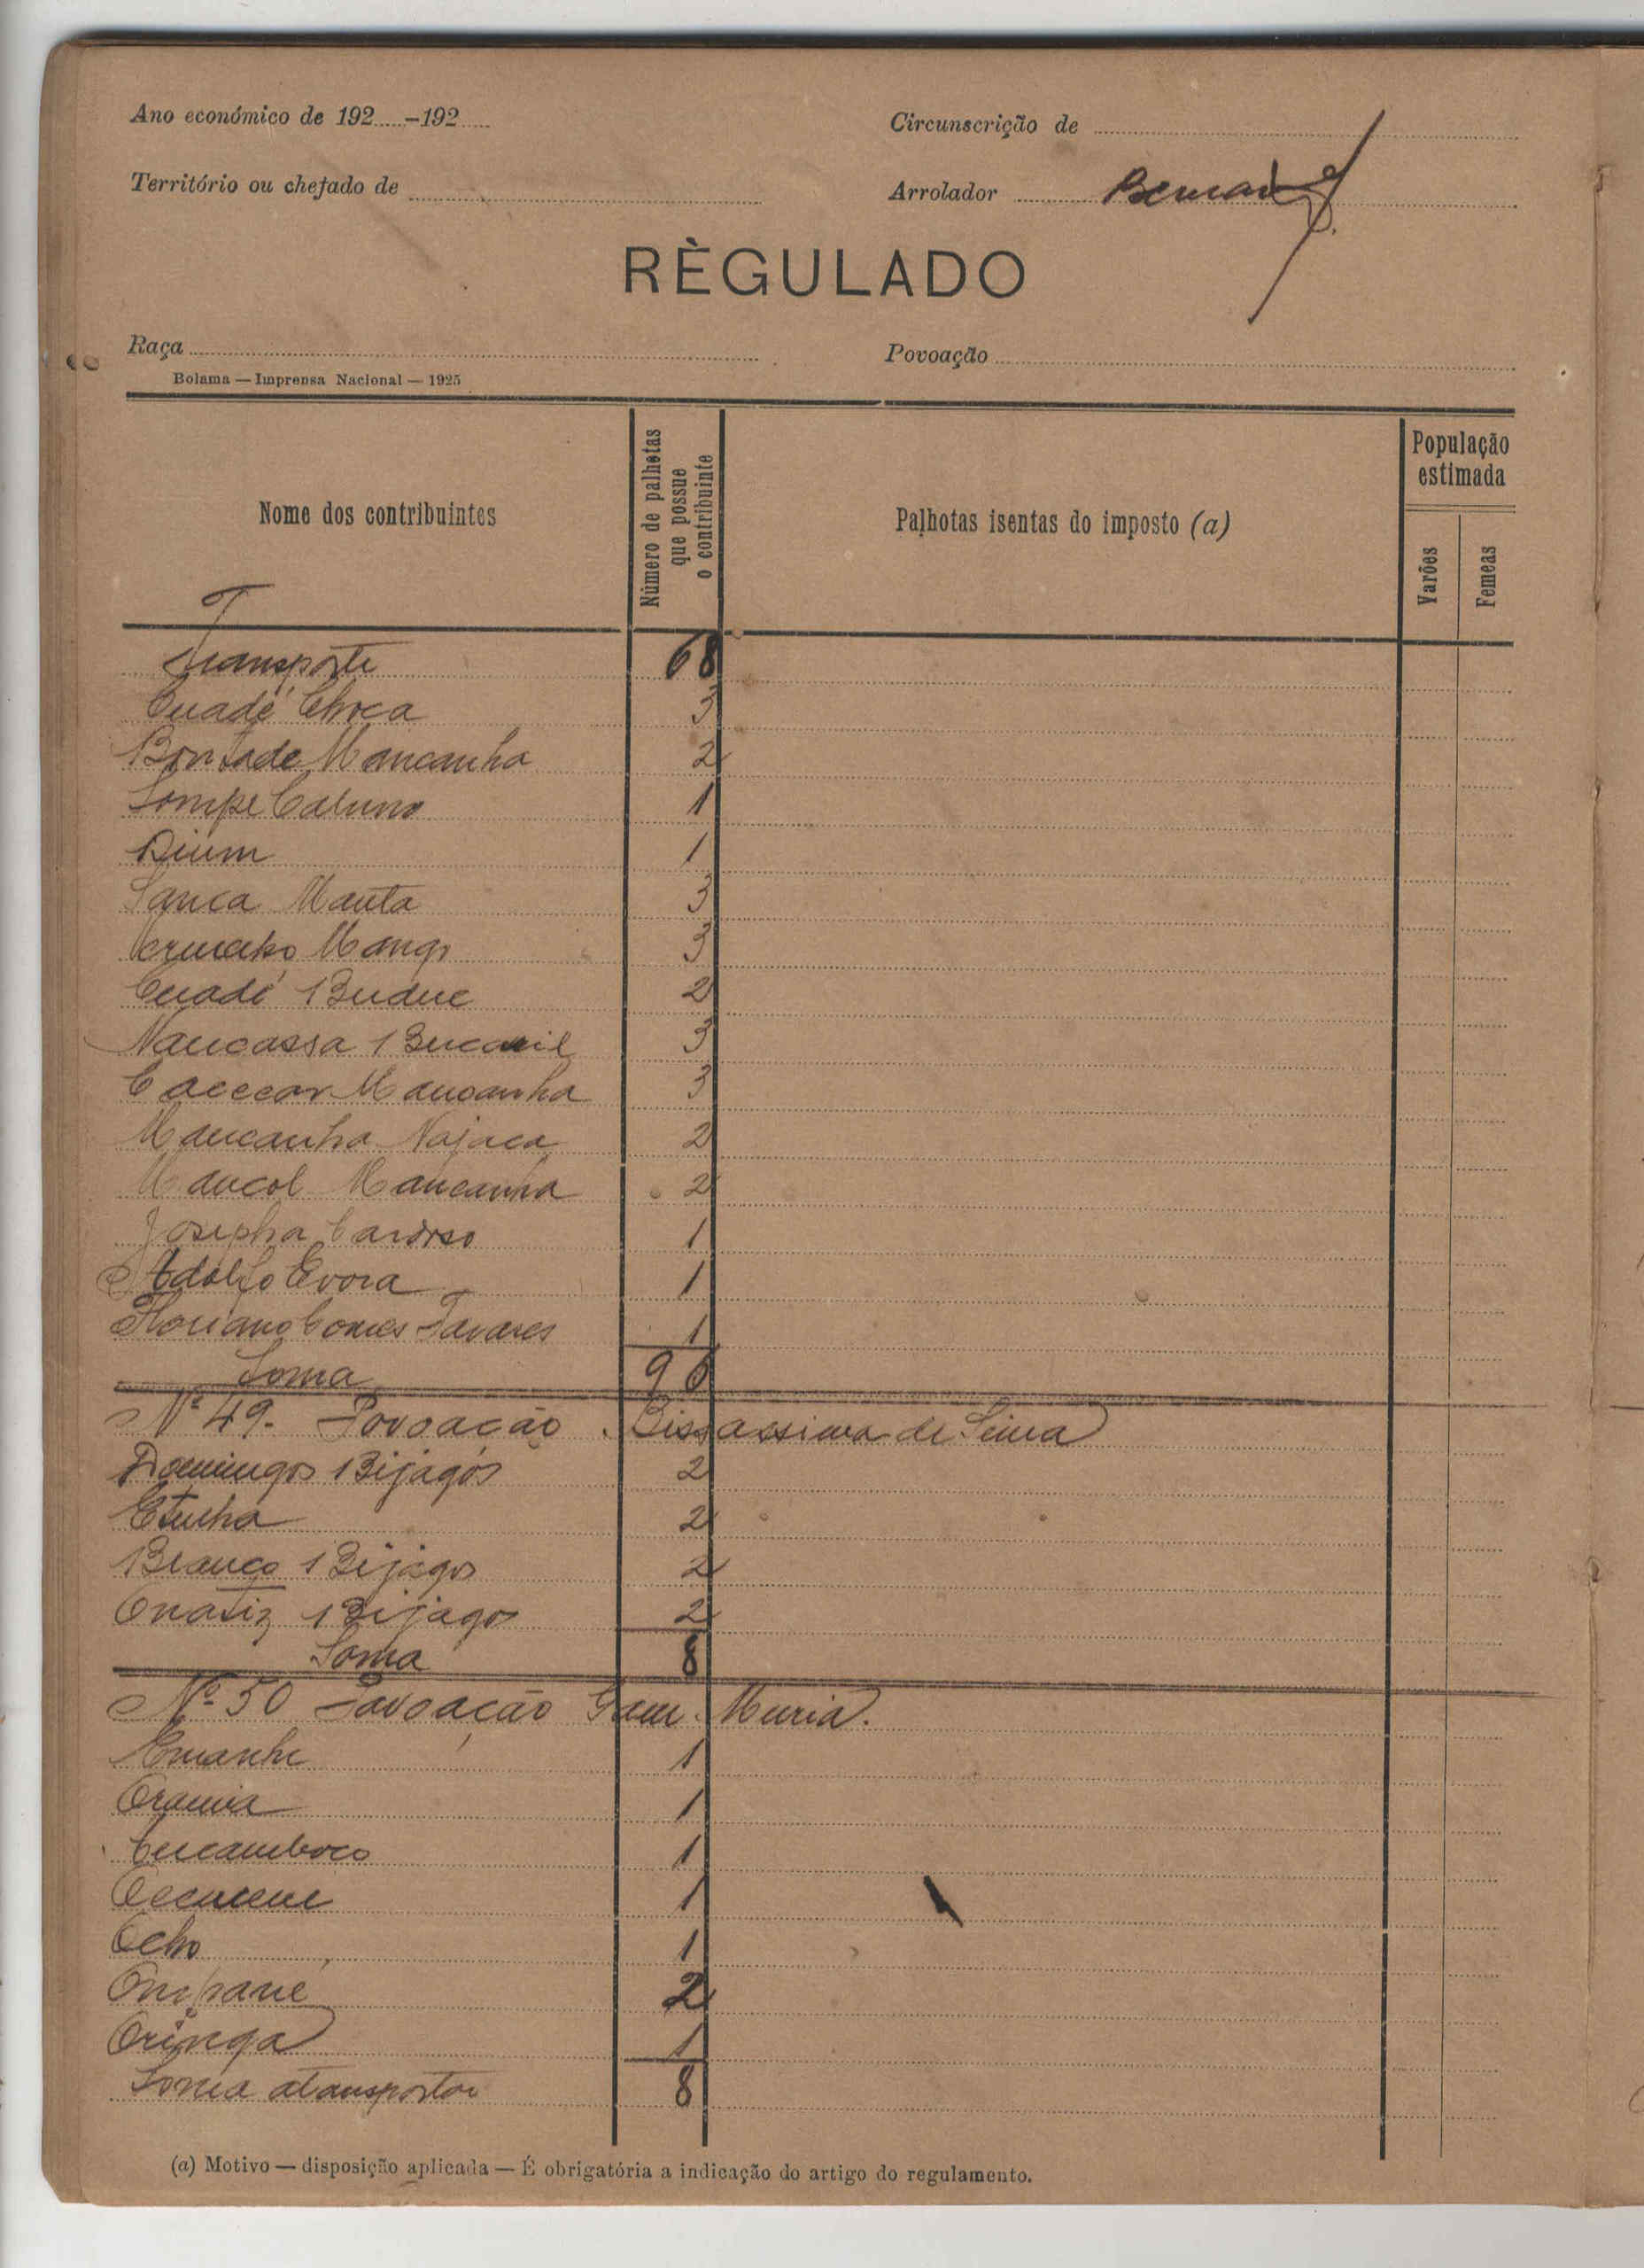 Ano económico de 192.....-192.....
Circunscrição de
Território ou chefado de
Arrolador
RÈGULADO
Raça
Povoação
Bolama — Imprensa Nacional — 1925
Nome dos contribuintes
Número de palhotas que possue o contribuinte
Palhotas isentas do imposto (a)
População estimada
Varões
Femeas
Transporte 68
Cuadé Choca 3
Bontade Mancanha 2
Sompe Caluno 1
Dium 1
Sanca Manta 3
Mango 3
Cuadé Budue 2
Nancassa 3
Mancanha 3
Mancanha Najaca 2
Mancol Mancanha 2
Josepha Cardoso 1
Adolfo Evora 1
Floriano Gomes Tavares 1
Soma 96
Nº 49. Povoação Bissassima de Sima
Domingos Bijagós 2
Etulha 2
Branco Bijagos 2
Onatiz Bijagos 2
Soma 8
Nº 50 Povoação Gam. Muria.
Emanhe 1
Orama 1
Cucamboco 1
1
Ocho 1
Ompané 2
Oringa 1
Soma a transportar 8
(a) Motivo — disposição aplicada — É obrigatória a indicação do artigo do regulamento.